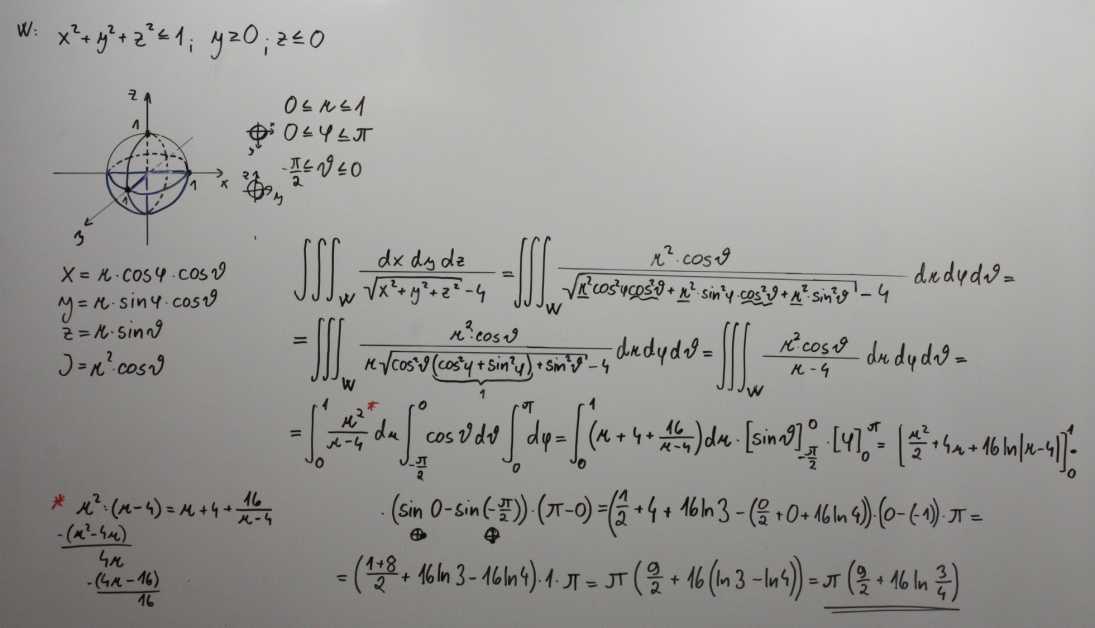 W: x² + y² + z² ≤ 1; y ≥ 0; z ≤ 0
z
1
x
1
1
y
0 ≤ r ≤ 1
x
y
0 ≤ φ ≤ π
z
y
-π/2 ≤ ϑ ≤ 0
x = r·cosφ·cosϑ
y = r·sinφ·cosϑ
z = r·sinϑ
J = r²·cosϑ
∭_W dx dy dz / (√(x² + y² + z²) - 4) = ∭_W r²·cosϑ / (√(r²cos²φcos²ϑ + r²·sin²φ·cos²ϑ + r²·sin²ϑ) - 4) dr dφ dϑ =
= ∭_W r²·cosϑ / (r√(cos²ϑ(cos²φ + sin²φ) + sin²ϑ) - 4) dr dφ dϑ = ∭_W r²cosϑ / (r - 4) dr dφ dϑ =
1
= ∫₀¹ r²/(r-4) * dr ∫_{-π/2}^0 cosϑ dϑ ∫₀^π dφ = ∫₀¹ (r + 4 + 16/(r-4)) dr · [sinϑ]_{-π/2}^0 · [φ]₀^π = [r²/2 + 4r + 16 ln|r-4|]₀¹ ·
· (sin 0 - sin(-π/2)) · (π - 0) = (1/2 + 4 + 16 ln 3 - (0/2 + 0 + 16 ln 4)) · (0 - (-1)) · π =
⊕ ⊕
= ((1+8)/2 + 16 ln 3 - 16 ln 4) · 1 · π = π (9/2 + 16 (ln 3 - ln 4)) = π (9/2 + 16 ln 3/4)
* r² : (r - 4) = r + 4 + 16/(r-4)
-(r² - 4r)
4r
-(4r - 16)
16